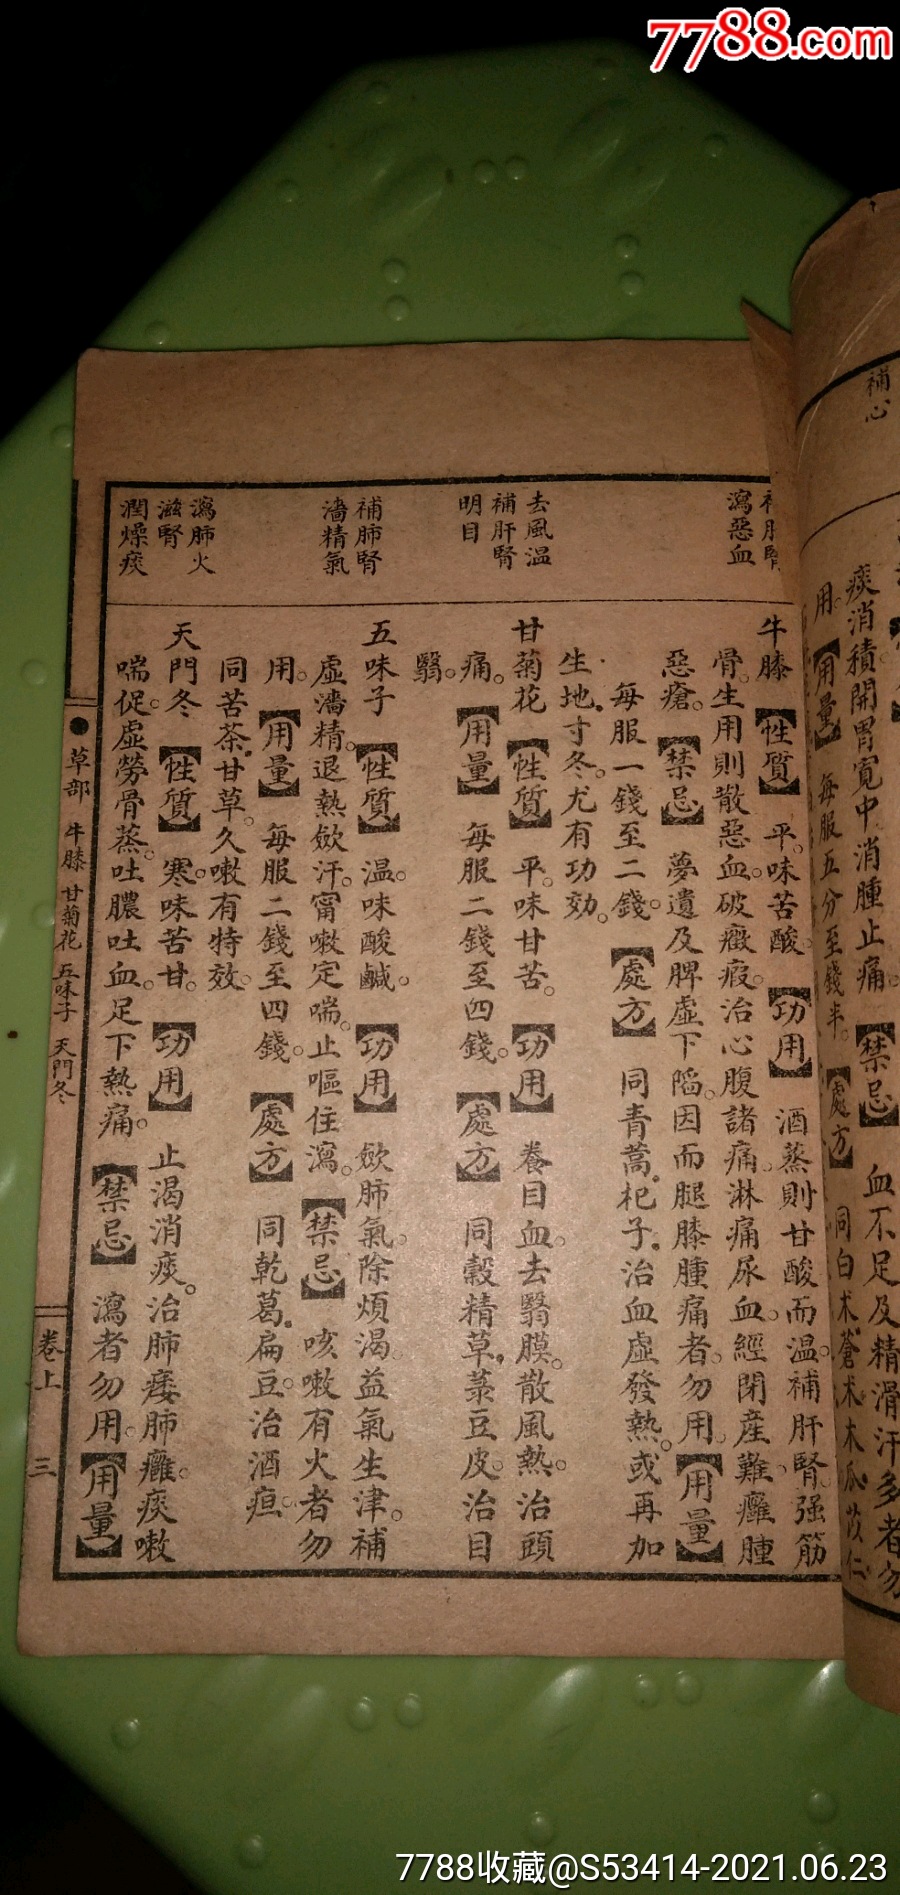 7788.com
補心
痰消積開胃寬中消腫止痛。【禁忌】血不足及精滑汗多者勿
用。【用量】每服五分至錢半。【處方】同白朮蒼朮木瓜苡仁
瀉惡血
去風温
補肝腎
明目
補肺腎
濇精氣
瀉肺火
滋腎
潤燥痰
牛膝【性質】平。味苦酸【功用】酒蒸則甘酸而温。補肝腎。强筋
骨。生用則散惡血。破癥瘕。治心腹諸痛。淋痛尿血。經閉產難。癰腫
惡瘡。【禁忌】夢遺及脾虛下陷。因而腿膝腫痛者。勿用。【用量】
每服一錢至二錢。【處方】同青蒿。杞子。治血虛發熱。或再加
生地。寸冬。尤有功効。
甘菊花【性質】平。味甘苦。【功用】養目血。去翳膜。散風熱。治頭
痛。【用量】每服二錢至四錢。【處方】同穀精草。菉豆皮。治目
翳。
五味子【性質】温。味酸鹹。【功用】歛肺氣。除煩渴。益氣生津。補
虛濇精。退熱歛汗。甯嗽定喘。止嘔住瀉。【禁忌】咳嗽有火者勿
用。【用量】每服二錢至四錢。【處方】同乾葛。扁豆。治酒疸。
同苦茶。甘草。久嗽有特效。
天門冬【性質】寒。味苦甘。【功用】止渴消痰。治肺痿肺癰。痰嗽
喘促。虛勞骨蒸。吐膿吐血。足下熱痛。【禁忌】瀉者勿用。【用量】
●草部 牛膝 甘菊花 五味子 天門冬
卷上 三
7788收藏@S53414-2021.06.23